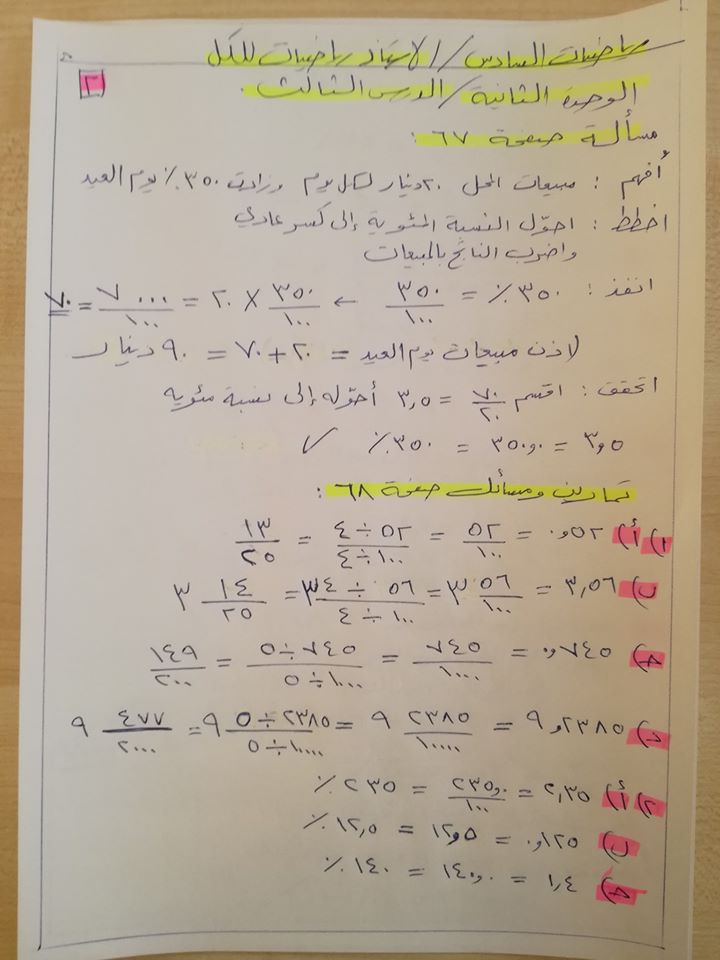 رياضيات السادس / الاستاذ رياضيات للكل
٢
الوحدة الثانية / الدرس الثالث
مسألة صفحة ٦٧ :
أفهم : مبيعات المحل ٢٠ دينار لكل يوم وزادت ٣٥٠٪ يوم العيد
اخطط : احوّل النسبة المئوية إلى كسر عادي
واضرب الناتج بالمبيعات
انفذ : ٣٥٠٪ = ٣٥٠/١٠٠ ← ٣٥٠/١٠٠ × ٢٠ = ٧٠٠٠/١٠٠ = ٧٠
اذن مبيعات يوم العيد = ٢٠ + ٧٠ = ٩٠ دينار
اتحقق : اقسم ٧٠/٢٠ = ٣,٥ أحوّله إلى نسبة مئوية
٣,٥ = ٣٥٠,٠ = ٣٥٠٪ ✓
تمارين ومسائل صفحة ٦٨ :
١) أ) ٠,٥٢ = ٥٢/١٠٠ = ٥٢÷٤/١٠٠÷٤ = ١٣/٢٥
ب) ٣,٥٦ = ٣ ٥٦/١٠٠ = ٣ ٥٦÷٤/١٠٠÷٤ = ٣ ١٤/٢٥
جـ) ٠,٧٤٥ = ٧٤٥/١٠٠٠ = ٧٤٥÷٥/١٠٠٠÷٥ = ١٤٩/٢٠٠
د) ٩,٢٣٨٥ = ٩ ٢٣٨٥/١٠٠٠٠ = ٩ ٢٣٨٥÷٥/١٠٠٠٠÷٥ = ٩ ٤٧٧/٢٠٠٠
٢) أ) ٢,٣٥ = ٢٣٥,٠/١٠٠ = ٢٣٥٪
ب) ٠,١٢٥ = ١٢,٥ = ١٢,٥٪
جـ) ١,٤ = ١٤٠,٠ = ١٤٠٪